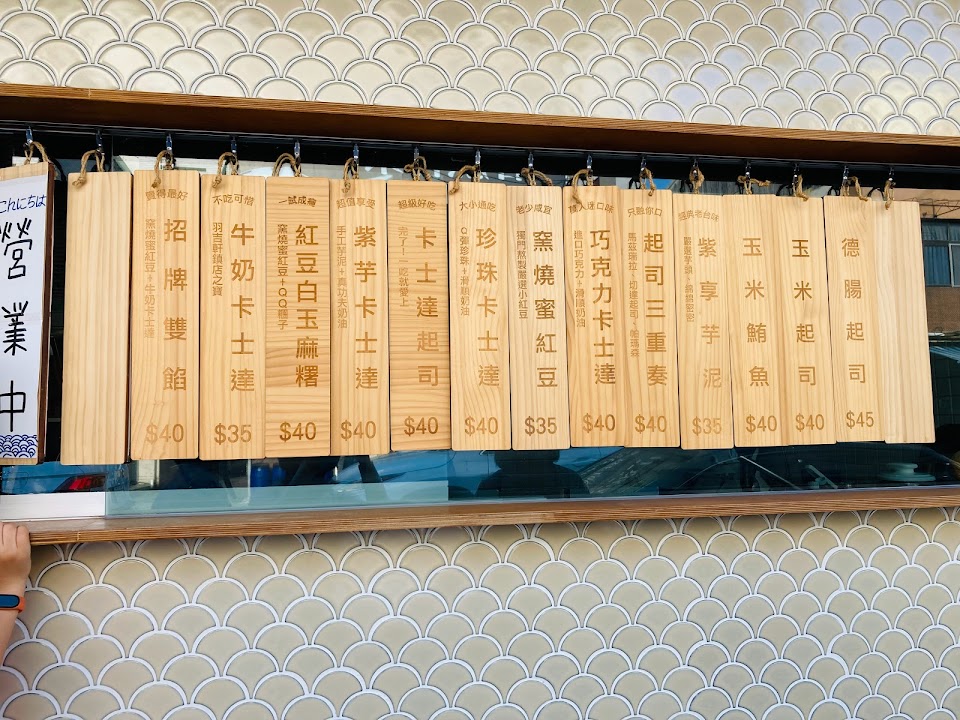 こんにちは
營業中
買得最好
招牌雙餡
窯燒蜜紅豆+牛奶卡士達
$40
不吃可惜
牛奶卡士達
羽吉軒鎮店之寶
$35
一試成癮
紅豆白玉麻糬
窯燒蜜紅豆+QQ糰子
$40
超值享受
紫芋卡士達
手工芋泥+真功夫奶油
$40
超級好吃
卡士達起司
完了!一吃就戀上
$40
大小通吃
珍珠卡士達
Q彈珍珠+滑順奶油
$40
老少咸宜
窯燒蜜紅豆
獨門熬製嚴選小紅豆
$35
巧克力卡士達
進口巧克力+滑順奶油
$40
只融你口
起司三重奏
馬茲瑞拉+切達起司+帕瑪森
$40
經典老台味
紫享芋泥
$35
玉米鮪魚
$40
玉米起司
$40
德腸起司
$45